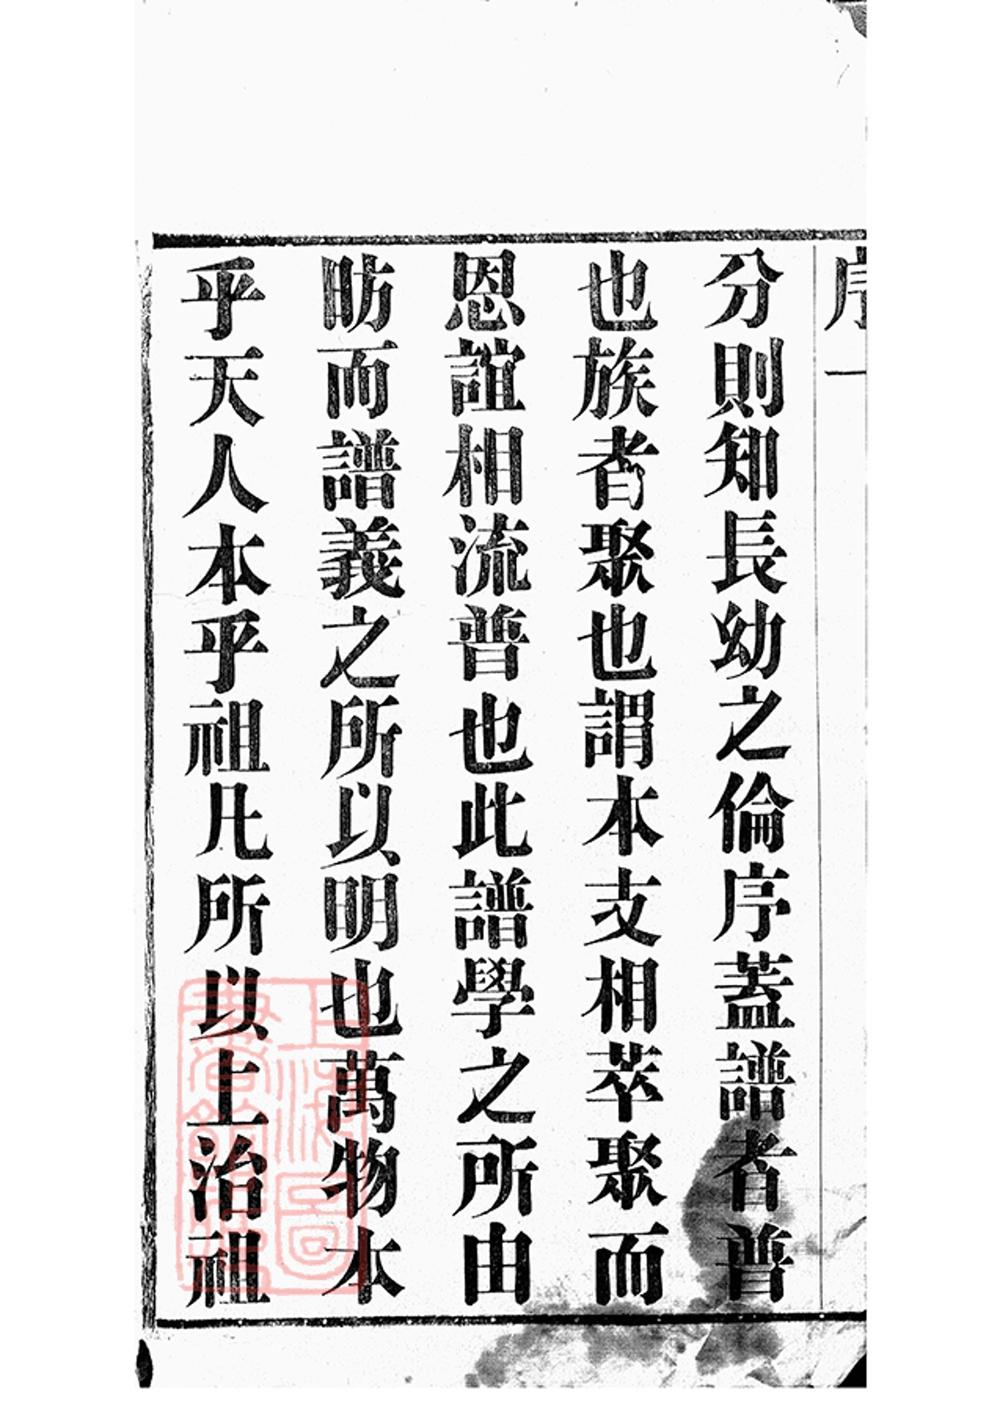 序一
分則知長幼之倫序蓋譜者普
也族者聚也謂本支相萃聚而
恩誼相流普也此譜學之所由
昉而譜義之所以明也萬物本
乎天人本乎祖凡所以上治祖
上海圖
書館藏